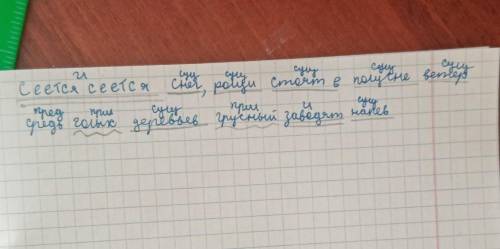 гл сущ сущ сущ сущ
Сеется сеется снег, рощи стоят в полусне ветер
пред прил сущ прил сущ
средь голых деревьев грустный заводят напев